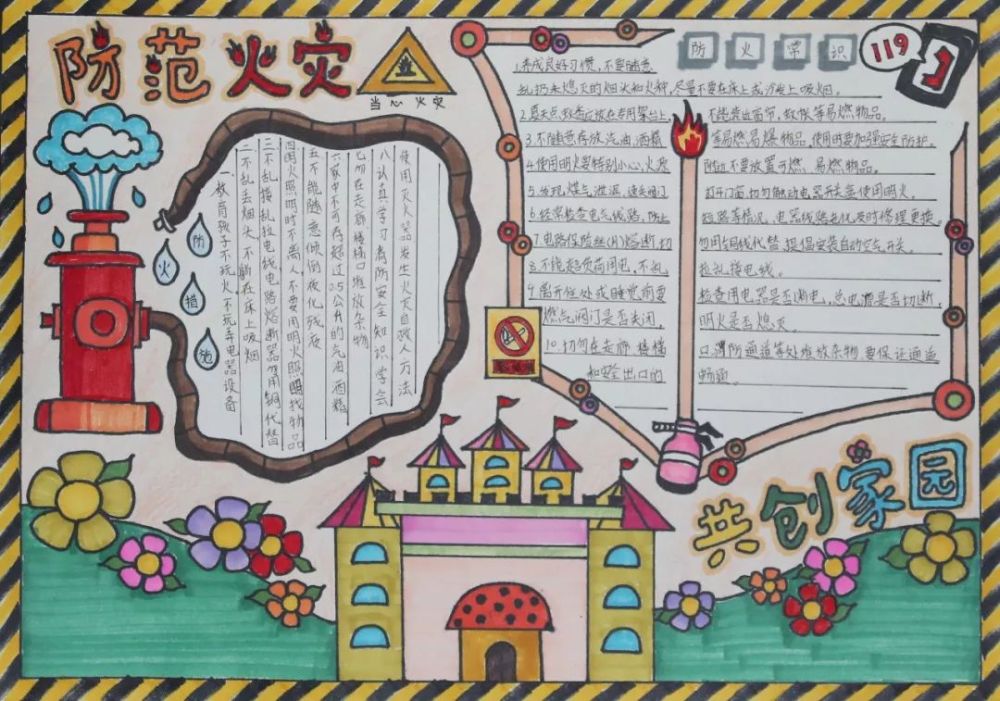 防范火灾
当心火灾
防火常识
119
防
火
措
施
一、教育孩子不玩火、不玩弄电器设备
二不乱丢烟头、不躺在床上吸烟
三不乱接乱拉电线电路熔断器勿用铜代替
四明火照明时不离人、不要用明火照明找物品
五不能随意倾倒液化残液
六家中不可存超过0.5公升的汽油酒精
七勿在走廊楼口堆放杂物
八认真学习消防安全知识学会
使用灭火器发生火灾自救人方法
1.养成良好习惯,不要随意
乱扔未熄灭的烟火和火种,尽量不要在床上或沙发上吸烟。
2.夏天点蚊香应放在专用架台上,不能靠近窗帘,蚊帐等易燃物品。
3.不随意存放汽油、酒精等易燃易爆物品,使用时要加强安全防护。
4.使用明火要特别小心,火源附近不要放置可燃、易燃物品。
5.发现煤气泄漏,速关阀门打开门窗,切勿触动电器开关并使用明火。
6.经常检查电气线路,防止短路等情况,电器线路老化及时修理更换。
7.电路保险丝(片)熔断,切勿用铜线代替,提倡安装自动空气开关。
8.不能超负荷用电,不乱拉乱接电线。
9.离开住处或睡觉前要检查用电器是否断电,总电源是否切断,
燃气阀门是否关闭,明火是否熄灭。
10.切勿在走廊、楼梯口、消防通道等处堆放杂物,要保证通道
和安全出口的畅通。
共创家园